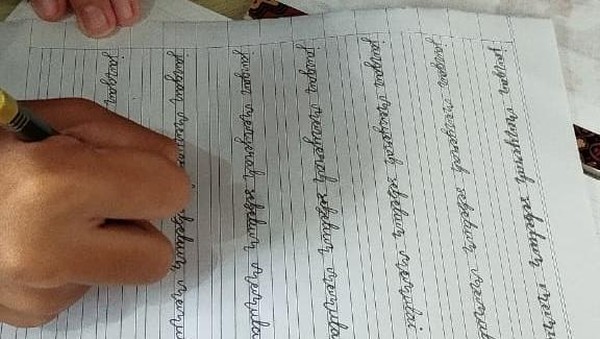 jangan menyerah sebelum
jangan menyerah sebelum
jangan menyerah sebelum memulai
jangan menyerah sebelum memulai
jangan menyerah sebelum memulai
jangan sebelum
jangan